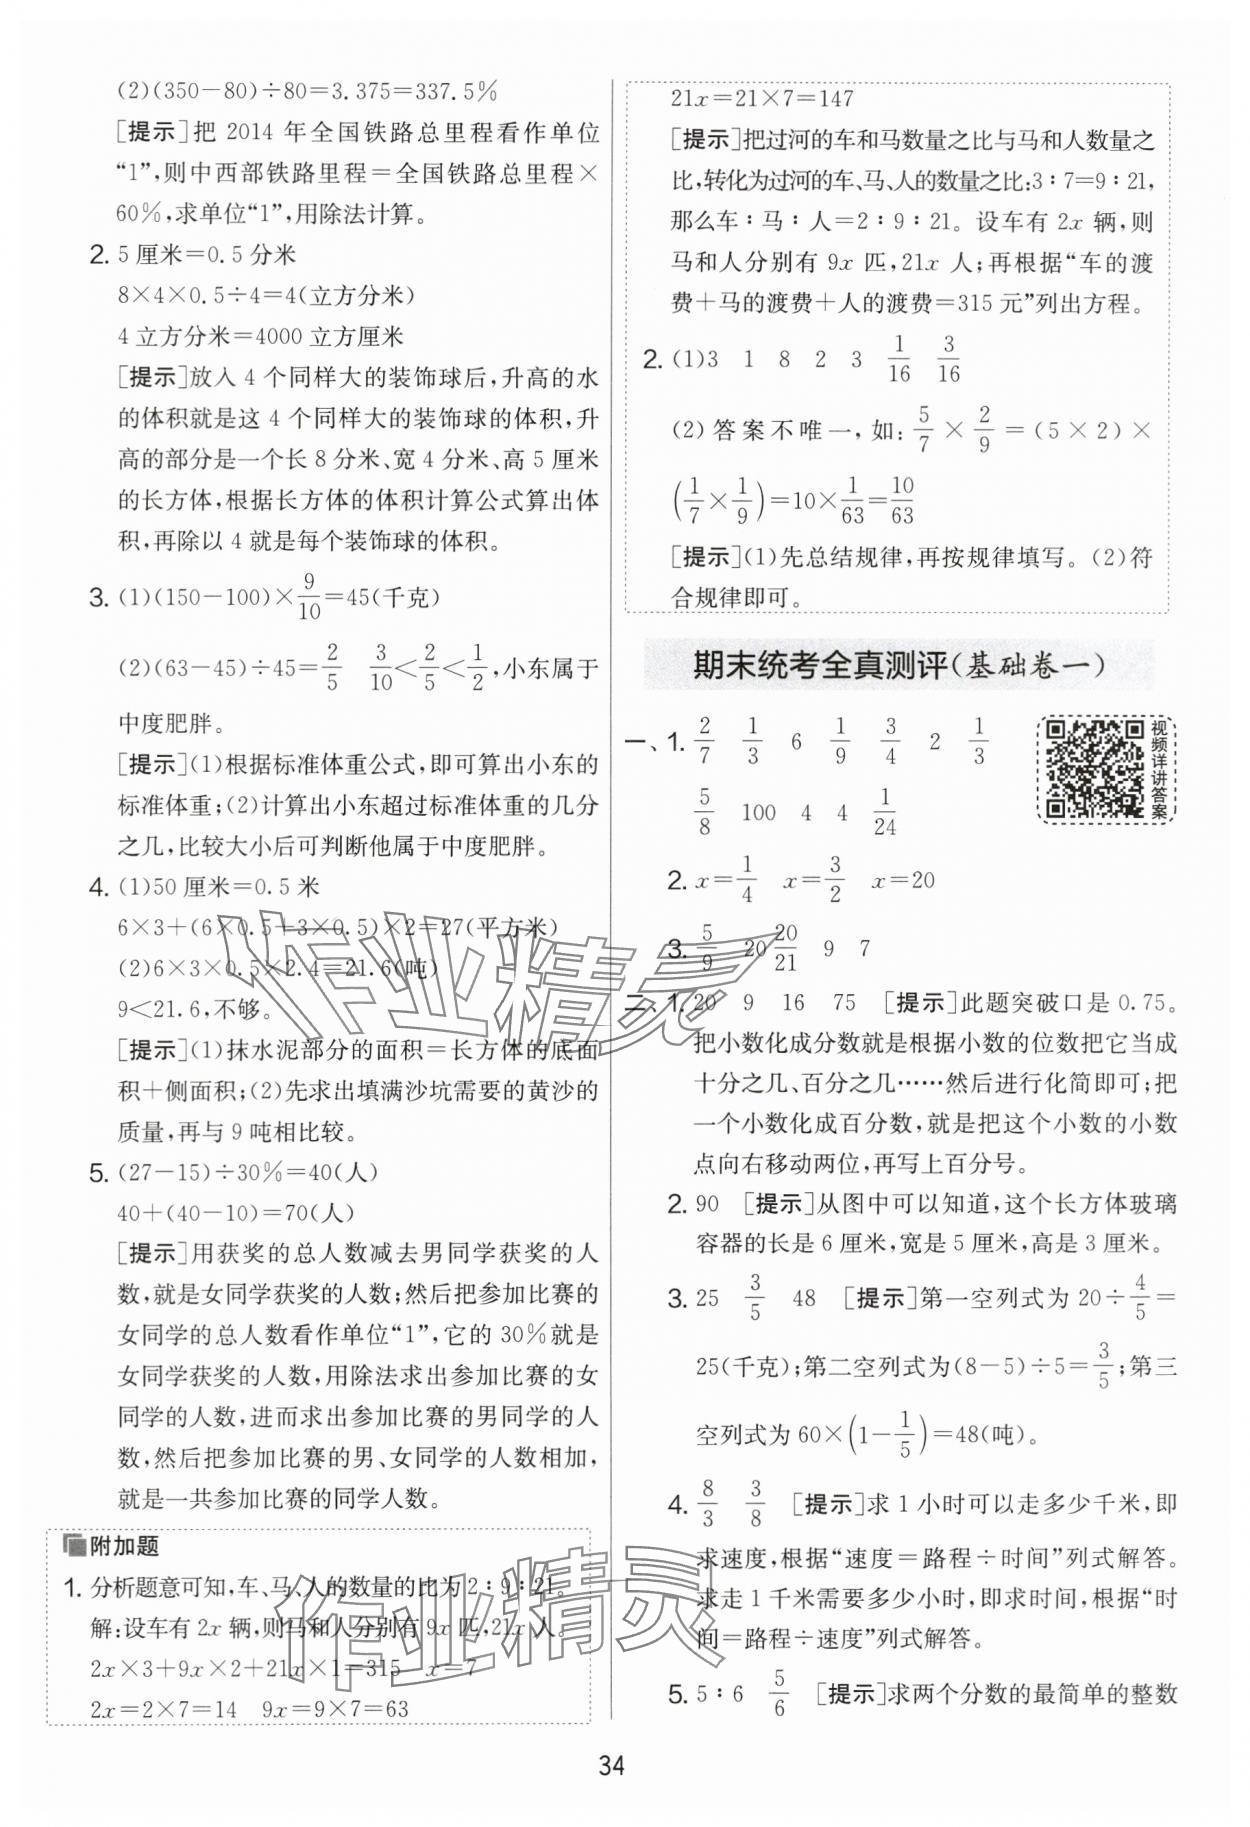 (2)(350-80)÷80=3.375=337.5%
[提示]把 2014 年全国铁路总里程看作单位
“1”,则中西部铁路里程=全国铁路总里程×
60%,求单位“1”,用除法计算。
2. 5 厘米=0.5 分米
8×4×0.5÷4=4(立方分米)
4 立方分米=4000 立方厘米
[提示]放入 4 个同样大的装饰球后,升高的水
的体积就是这 4 个同样大的装饰球的体积,升
高的部分是一个长 8 分米、宽 4 分米、高 5 厘米
的长方体,根据长方体的体积计算公式算出体
积,再除以 4 就是每个装饰球的体积。
3. (1)(150-100)×9/10=45(千克)
(2)(63-45)÷45=2/5 3/10<2/5<1/2,小东属于
中度肥胖。
[提示](1)根据标准体重公式,即可算出小东的
标准体重;(2)计算出小东超过标准体重的几分
之几,比较大小后可判断他属于中度肥胖。
4. (1)50 厘米=0.5 米
6×3+(6×0.5+3×0.5)×2=27(平方米)
(2)6×3×0.5×2.4=21.6(吨)
9<21.6,不够。
[提示](1)抹水泥部分的面积=长方体的底面
积+侧面积;(2)先求出填满沙坑需要的黄沙的
质量,再与 9 吨相比较。
5. (27-15)÷30%=40(人)
40+(40-10)=70(人)
[提示]用获奖的总人数减去男同学获奖的人
数,就是女同学获奖的人数;然后把参加比赛的
女同学的总人数看作单位“1”,它的 30%就是
女同学获奖的人数,用除法求出参加比赛的女
同学的人数,进而求出参加比赛的男同学的人
数,然后把参加比赛的男、女同学的人数相加,
就是一共参加比赛的同学人数。
附加题
1. 分析题意可知,车、马、人的数量的比为 2∶9∶21。
解:设车有 2x 辆,则马和人分别有 9x 匹,21x 人。
2x×3+9x×2+21x×1=315 x=7
2x=2×7=14 9x=9×7=63
21x=21×7=147
[提示]把过河的车和马数量之比与马和人数量之
比,转化为过河的车、马、人的数量之比:3∶7=9∶21,
那么车∶马∶人=2∶9∶21。设车有 2x 辆,则
马和人分别有 9x 匹,21x 人;再根据“车的渡
费+马的渡费+人的渡费=315 元”列出方程。
2. (1)3 1 8 2 3 1/16 3/16
(2)答案不唯一,如:5/7×2/9=(5×2)×
(1/7×1/9)=10×1/63=10/63
[提示](1)先总结规律,再按规律填写。(2)符
合规律即可。
期末统考全真测评(基础卷一)
视频详讲答案
一、1. 2/7 1/3 6 1/9 3/4 2 1/3
5/8 100 4 4 1/24
2. x=1/4 x=3/2 x=20
3. 5/9 20 20/21 9 7
二、1. 20 9 16 75 [提示]此题突破口是 0.75。
把小数化成分数就是根据小数的位数把它当成
十分之几、百分之几……然后进行化简即可;把
一个小数化成百分数,就是把这个小数的小数
点向右移动两位,再写上百分号。
2. 90 [提示]从图中可以知道,这个长方体玻璃
容器的长是 6 厘米,宽是 5 厘米,高是 3 厘米。
3. 25 3/5 48 [提示]第一空列式为 20÷4/5=
25(千克);第二空列式为(8-5)÷5=3/5;第三
空列式为 60×(1-1/5)=48(吨)。
4. 8/3 3/8 [提示]求 1 小时可以走多少千米,即
求速度,根据“速度=路程÷时间”列式解答。
求走 1 千米需要多少小时,即求时间,根据“时
间=路程÷速度”列式解答。
5. 5∶6 5/6 [提示]求两个分数的最简单的整数
34
作业精灵
作业精灵